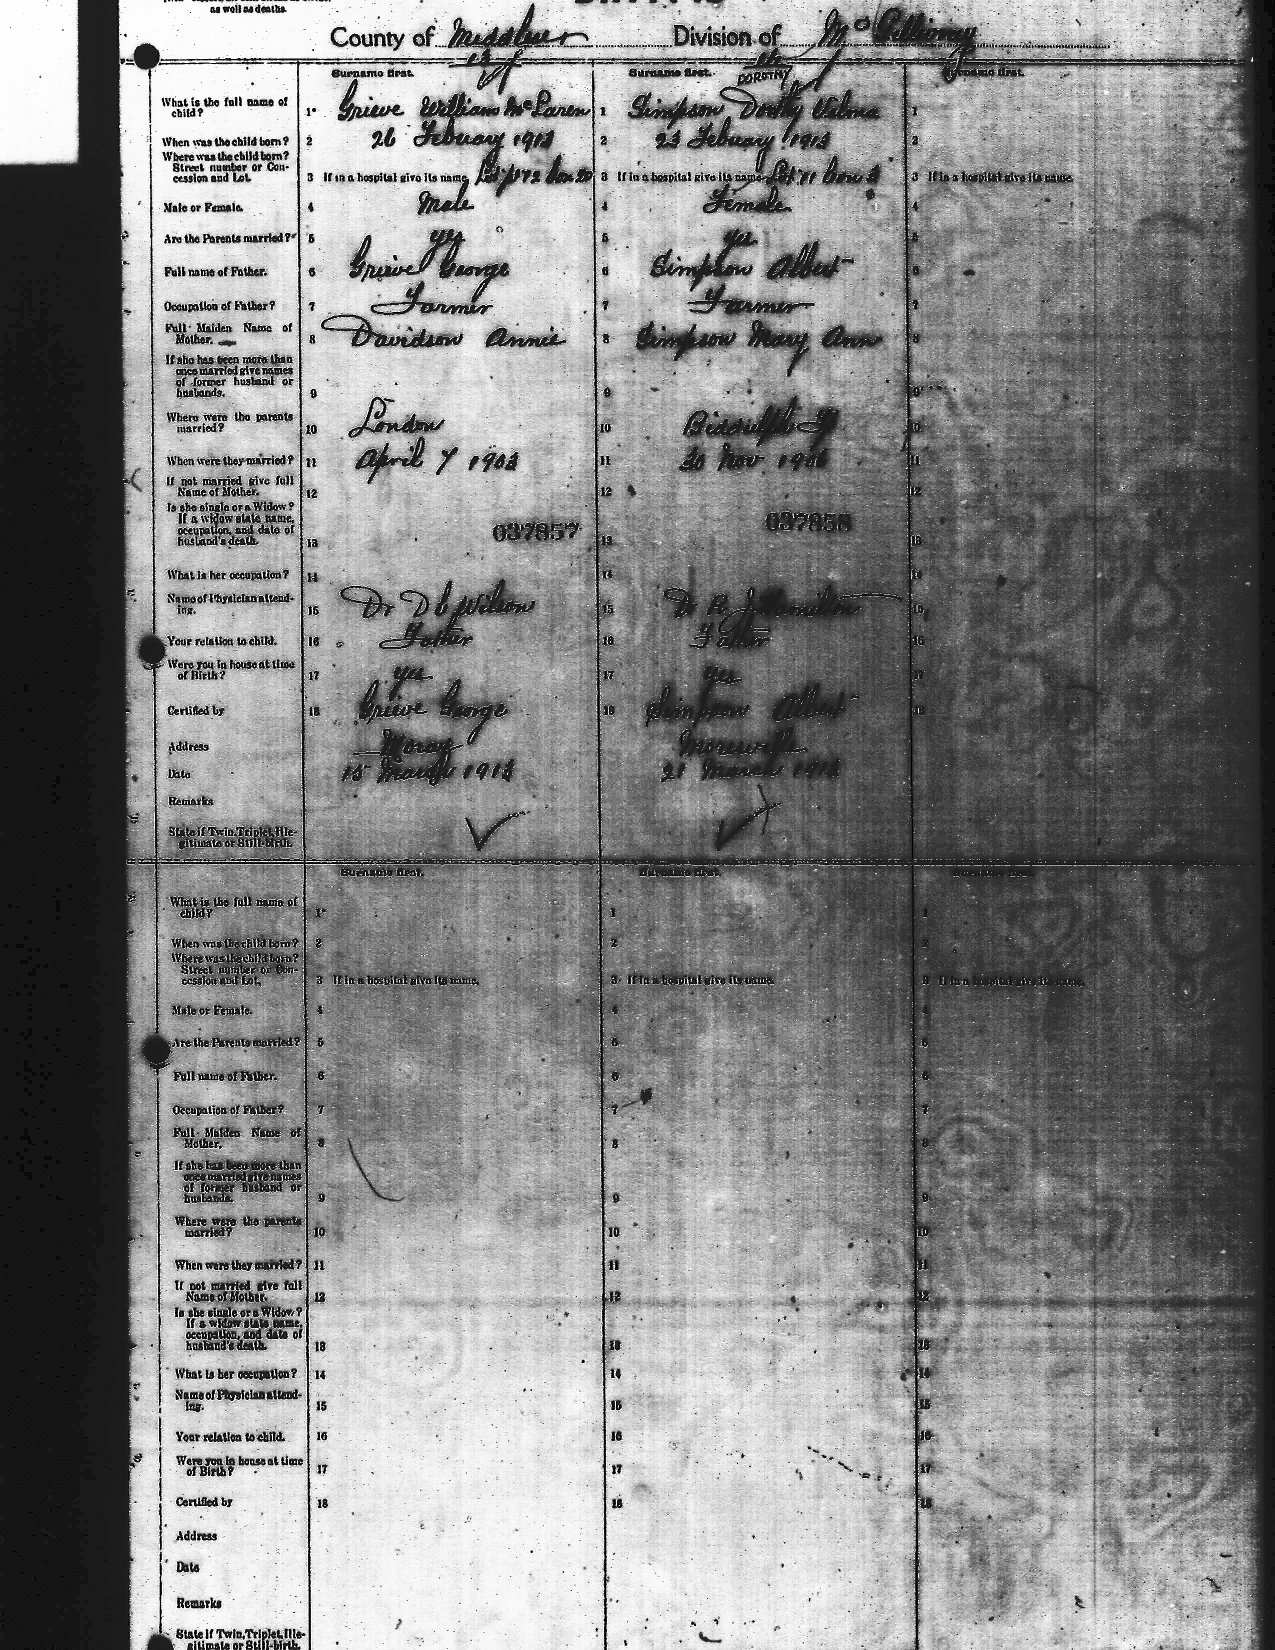 as well as deaths.
County of Middlesex Division of McGillivray
Surname first. Surname first. Surname first.
DOROTHY
What is the full name of child? 1 Grieve William McLaren 1 Simpson Dorothy Velma 1
When was the child born? 2 26 Febuary 1913 2 23 Febuary 1913 2
Where was the child born? Street number or Concession and Lot. 3 If in a hospital give its name. Lot 3 If in a hospital give its name. Lot 11 Con 3 If in a hospital give its name.
Male or Female. 4 Male 4 Female 4
Are the Parents married? 5 yes 5 yes 5
Full name of Father. 6 Grieve George 6 Simpson Albert 6
Occupation of Father? 7 Farmer 7 Farmer 7
Full Maiden Name of Mother. 8 Davidson Annie 8 Simpson Mary Ann 8
If she has been more than once married give names of former husband or husbands. 9 9 9
Where were the parents married? 10 London 10 Biddulph Tp 10
When were they married? 11 April 7 1903 11 Nov 11
If not married give full Name of Mother. 12 12 12
Is she single or a Widow? If a widow state name, occupation, and date of husband's death. 13 037857 13 037858 13
What is her occupation? 14 14 14
Name of Physician attending. 15 Dr D C Wilson 15 Dr R J Hamilton 15
Your relation to child. 16 Father 16 Father 16
Were you in house at time of Birth? 17 yes 17 yes 17
Certified by 18 Grieve George 18 Simpson Albert 18
Address Moray Mooresville
Date 15 March 1913 21 March 1913
Remarks
State if Twin, Triplet, Illegitimate or Still-birth.
Surname first. Surname first. Surname first.
What is the full name of child? 1 1 1
When was the child born? 2 2 2
Where was the child born? Street number or Concession and Lot. 3 If in a hospital give its name. 3 If in a hospital give its name. 3 If in a hospital give its name.
Male or Female. 4 4 4
Are the Parents married? 5 5 5
Full name of Father. 6 6 6
Occupation of Father? 7 7 7
Full Maiden Name of Mother. 8 8 8
If she has been more than once married give names of former husband or husbands. 9 9 9
Where were the parents married? 10 10 10
When were they married? 11 11 11
If not married give full Name of Mother. 12 12 12
Is she single or a Widow? If a widow state name, occupation, and date of husband's death. 13 13 13
What is her occupation? 14 14 14
Name of Physician attending. 15 15 15
Your relation to child. 16 16 16
Were you in house at time of Birth? 17 17 17
Certified by 18 18 18
Address
Date
Remarks
State if Twin, Triplet, Illegitimate or Still-birth.